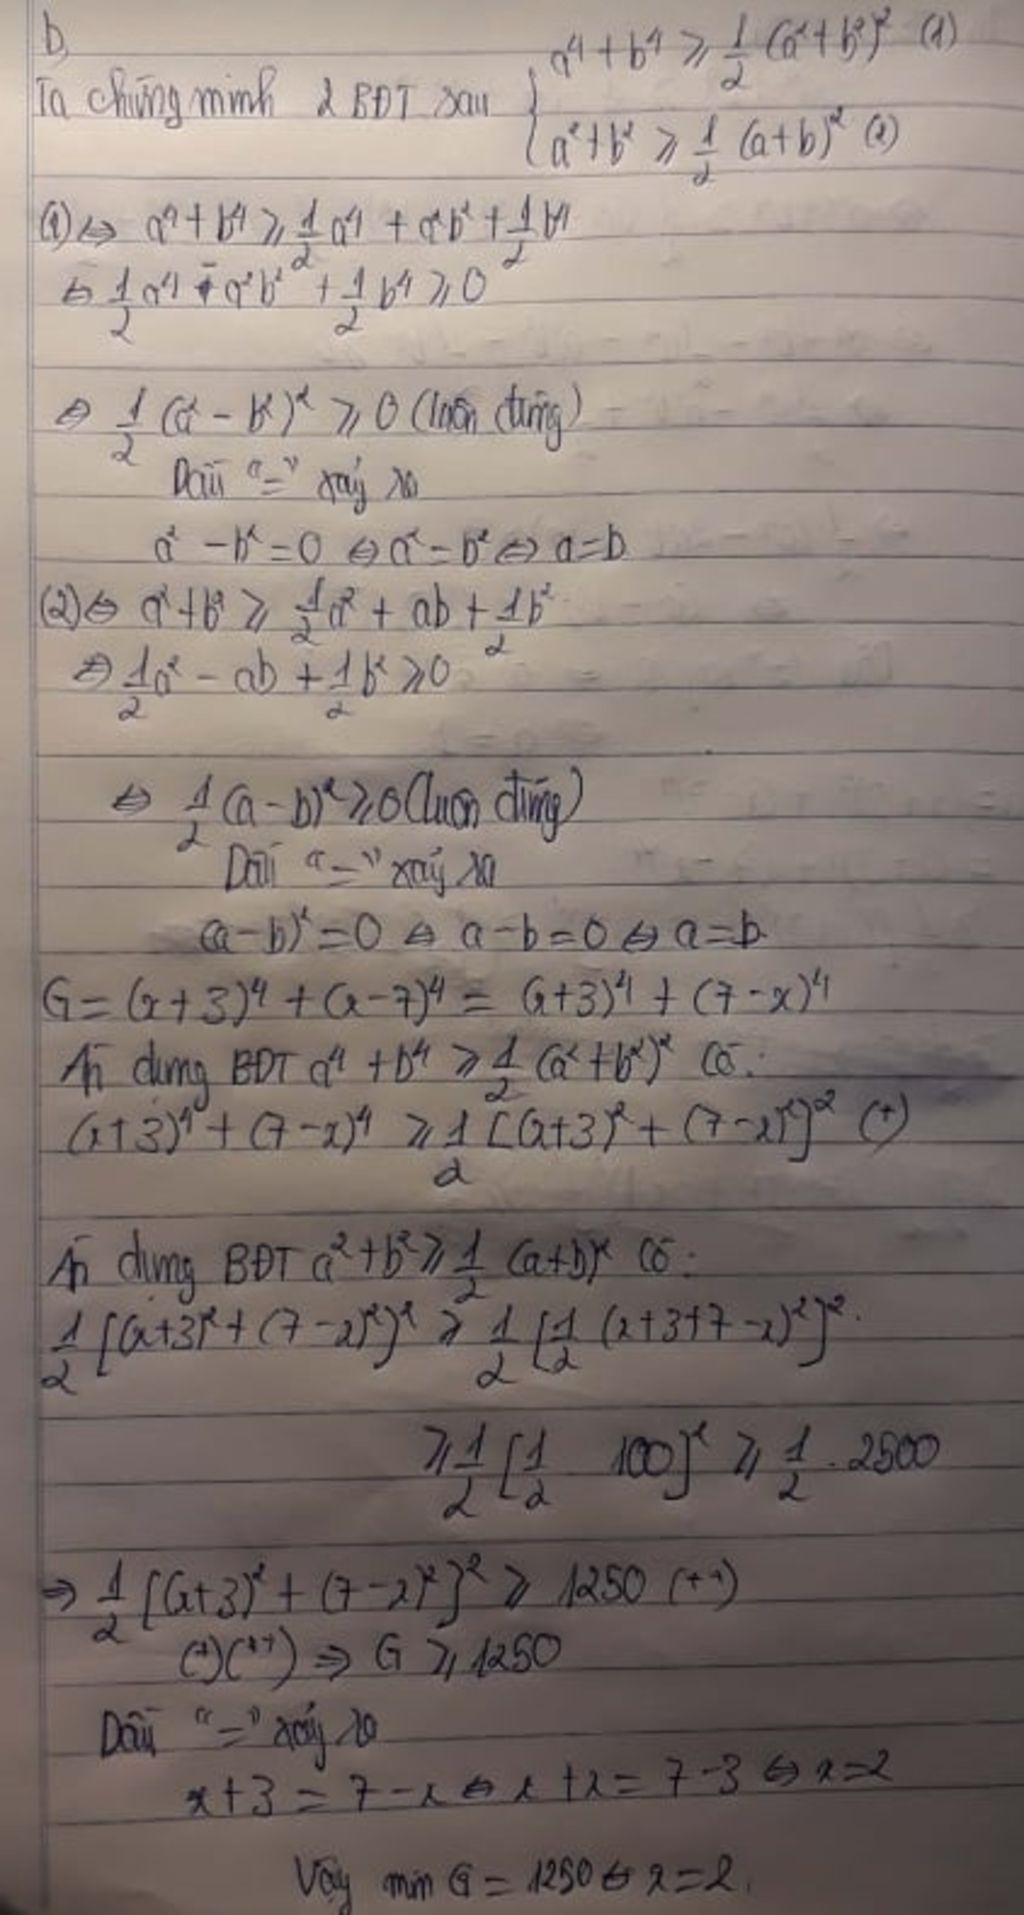 b,
Ta chứng minh 2 BĐT sau { a⁴ + b⁴ ≥ 1/2 (a² + b²)² (1)
a² + b² ≥ 1/2 (a+b)² (2)
(1) ⇔ a⁴ + b⁴ ≥ 1/2 a⁴ + a²b² + 1/2 b⁴
⇔ 1/2 a⁴ - a²b² + 1/2 b⁴ ≥ 0
⇔ 1/2 (a² - b²)² ≥ 0 (luôn đúng)
Dấu "=" xảy ra
a² - b² = 0 ⇔ a² = b² ⇔ a = b
(2) ⇔ a² + b² ≥ 1/2 a² + ab + 1/2 b²
⇔ 1/2 a² - ab + 1/2 b² ≥ 0
⇔ 1/2 (a - b)² ≥ 0 (luôn đúng)
Dấu "=" xảy ra
(a - b)² = 0 ⇔ a - b = 0 ⇔ a = b
G = (x + 3)⁴ + (x - 7)⁴ = (x + 3)⁴ + (7 - x)⁴
Áp dụng BĐT a⁴ + b⁴ ≥ 1/2 (a² + b²)² có:
(x + 3)⁴ + (7 - x)⁴ ≥ 1/2 [(x + 3)² + (7 - x)²]² (+)
Áp dụng BĐT a² + b² ≥ 1/2 (a+b)² có:
1/2 [(x+3)² + (7 - x)²]² ≥ 1/2 [1/2 (x + 3 + 7 - x)²]².
≥ 1/2 [1/2 100]² ≥ 1/2 . 2500
⇒ 1/2 [(x+3)² + (7 - x)²]² ≥ 1250 (++)
(+)(++) ⇒ G ≥ 1250
Dấu "=" xảy ra
x + 3 = 7 - x ⇔ x + x = 7 - 3 ⇔ x = 2
Vậy min G = 1250 ⇔ x = 2.